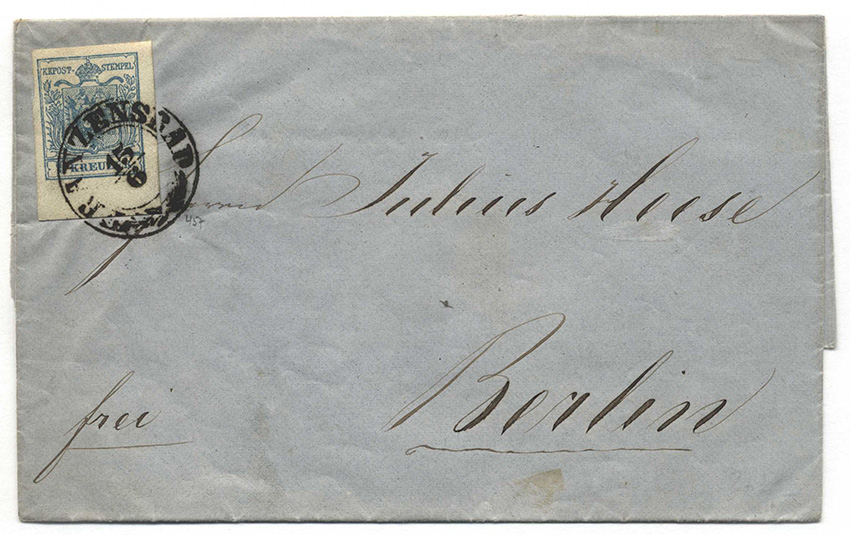 KKPOST-STEMPEL
KREUZER
FRANZENSBAD
Herrn Julius Heese
Berlin
frei
457